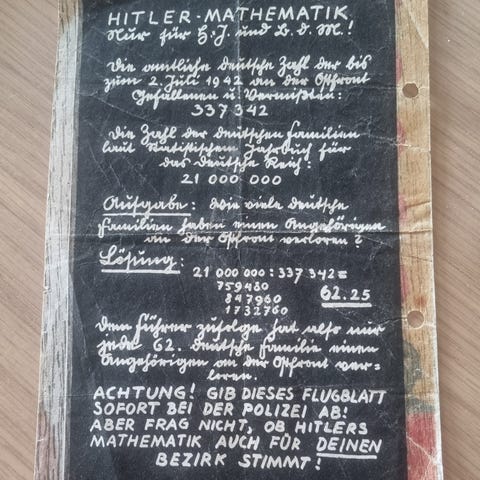 HITLER-MATHEMATIK.
Nur für H.J. und B.d.M.!
Die amtliche deutsche Zahl der bis
zum 2. Juli 1942 an der Ostfront
Gefallenen u. Vermißten:
337 342
Die Zahl der deutschen Familien
laut Statistischem Jahrbuch für
das Deutsche Reich:
21 000 000
Aufgabe: Wie viele deutsche
Familien haben einen Angehörigen
an der Ostfront verloren?
Lösung:
21 000 000 : 337 342 =
759480
847960
1732760
62.25
Dem Führer zufolge hat also nur
jede 62. deutsche Familie einen
Angehörigen an der Ostfront ver-
loren.
ACHTUNG! GIB DIESES FLUGBLATT
SOFORT BEI DER POLIZEI AB!
ABER FRAG NICHT, OB HITLERS
MATHEMATIK AUCH FÜR DEINEN
BEZIRK STIMMT!